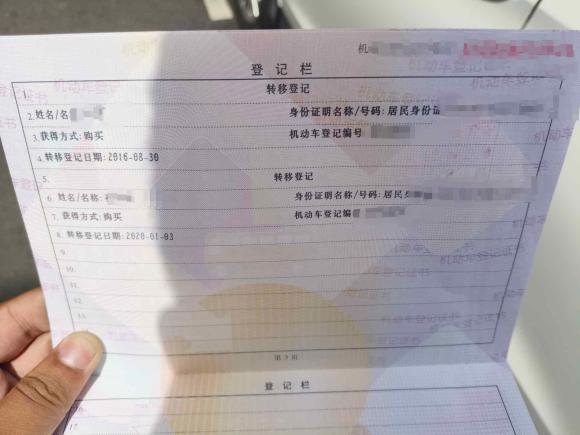 机
登 记 栏
1.
转移登记
2. 姓名/名
身份证明名称/号码: 居民身份证
3. 获得方式: 购买
机动车登记编号
4. 转移登记日期: 2016-08-30
5.
转移登记
6. 姓名/名称:
身份证明名称/号码: 居民身
7. 获得方式: 购买
机动车登记编
8. 转移登记日期: 2020-01-03
9.
10.
11.
12.
13.
第 3 页
登 记 栏
16.
17.
机动车登记证书